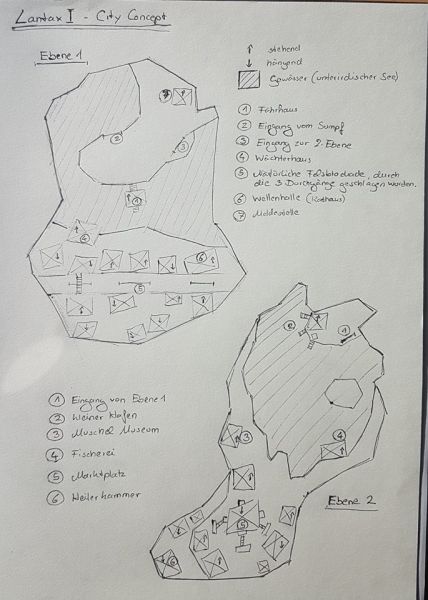 Lantax I - City Concept
Ebene 1
↑ stehend
↓ hängend
Gewässer (unterirdischer See)
① Fährhaus
② Eingang vom Sumpf
③ Eingang zur 2. Ebene
④ Wächterhaus
⑤ Natürliche Felsblockade, durch
die 3 Durchgänge geschlagen wurden.
⑥ Wellenhalle (Rathaus)
⑦ Meldestelle
① Eingang von Ebene 1
② kleiner Hafen
③ Muschel Museum
④ Fischerei
⑤ Marktplatz
⑥ Heilerkammer
Ebene 2